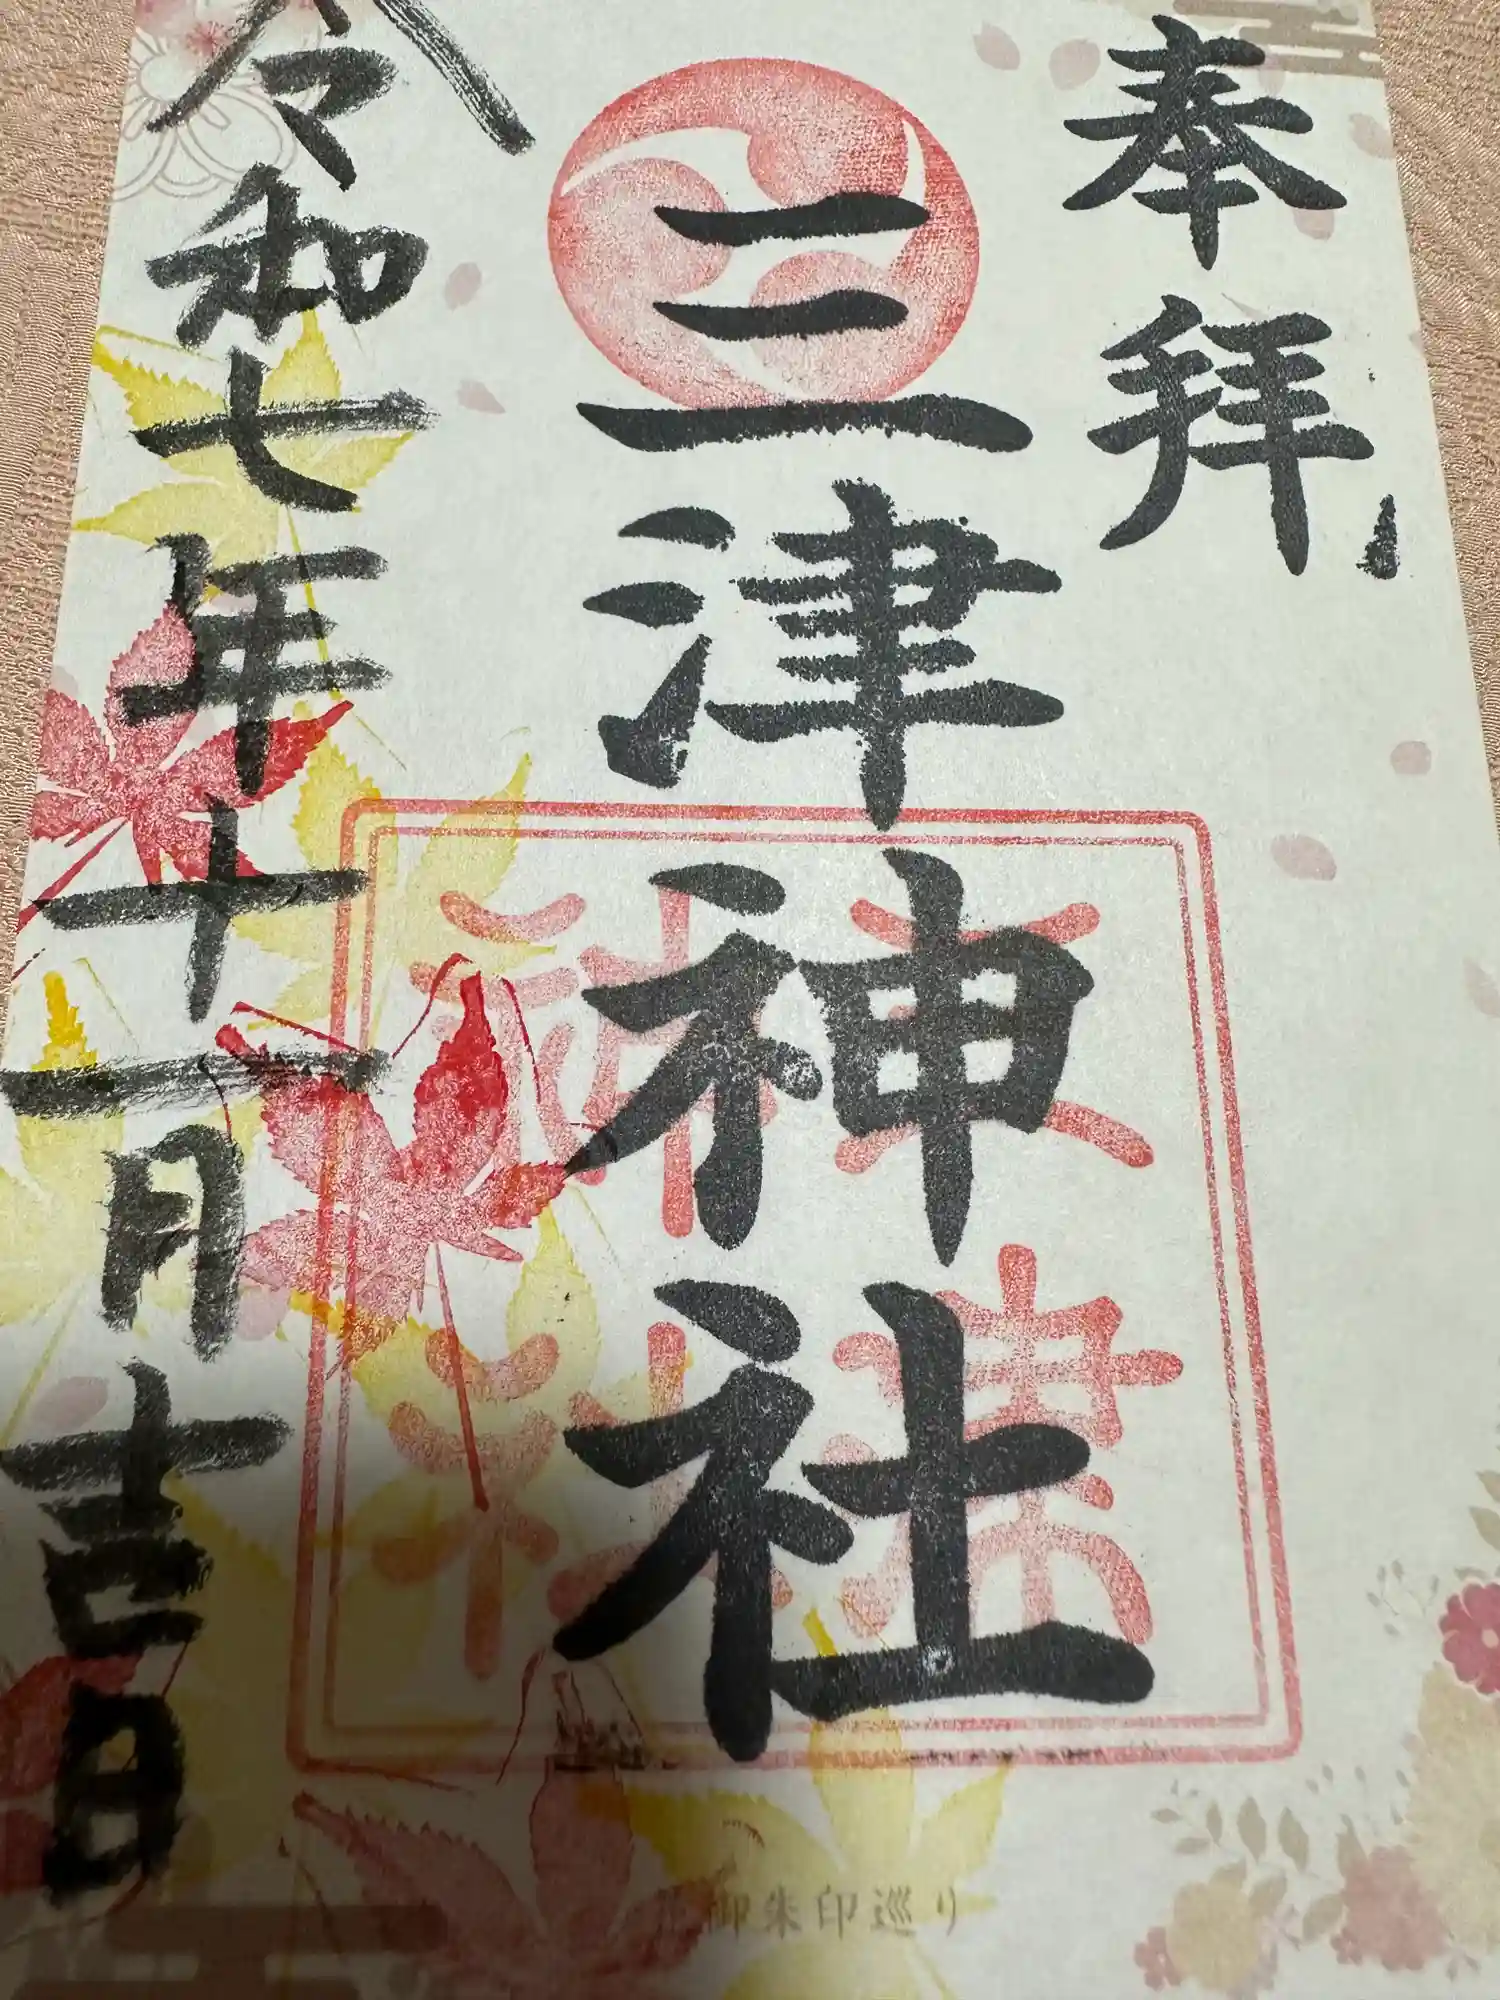 奉拝
三津神社
令和七年十一月吉日
津
神社
御朱印巡り